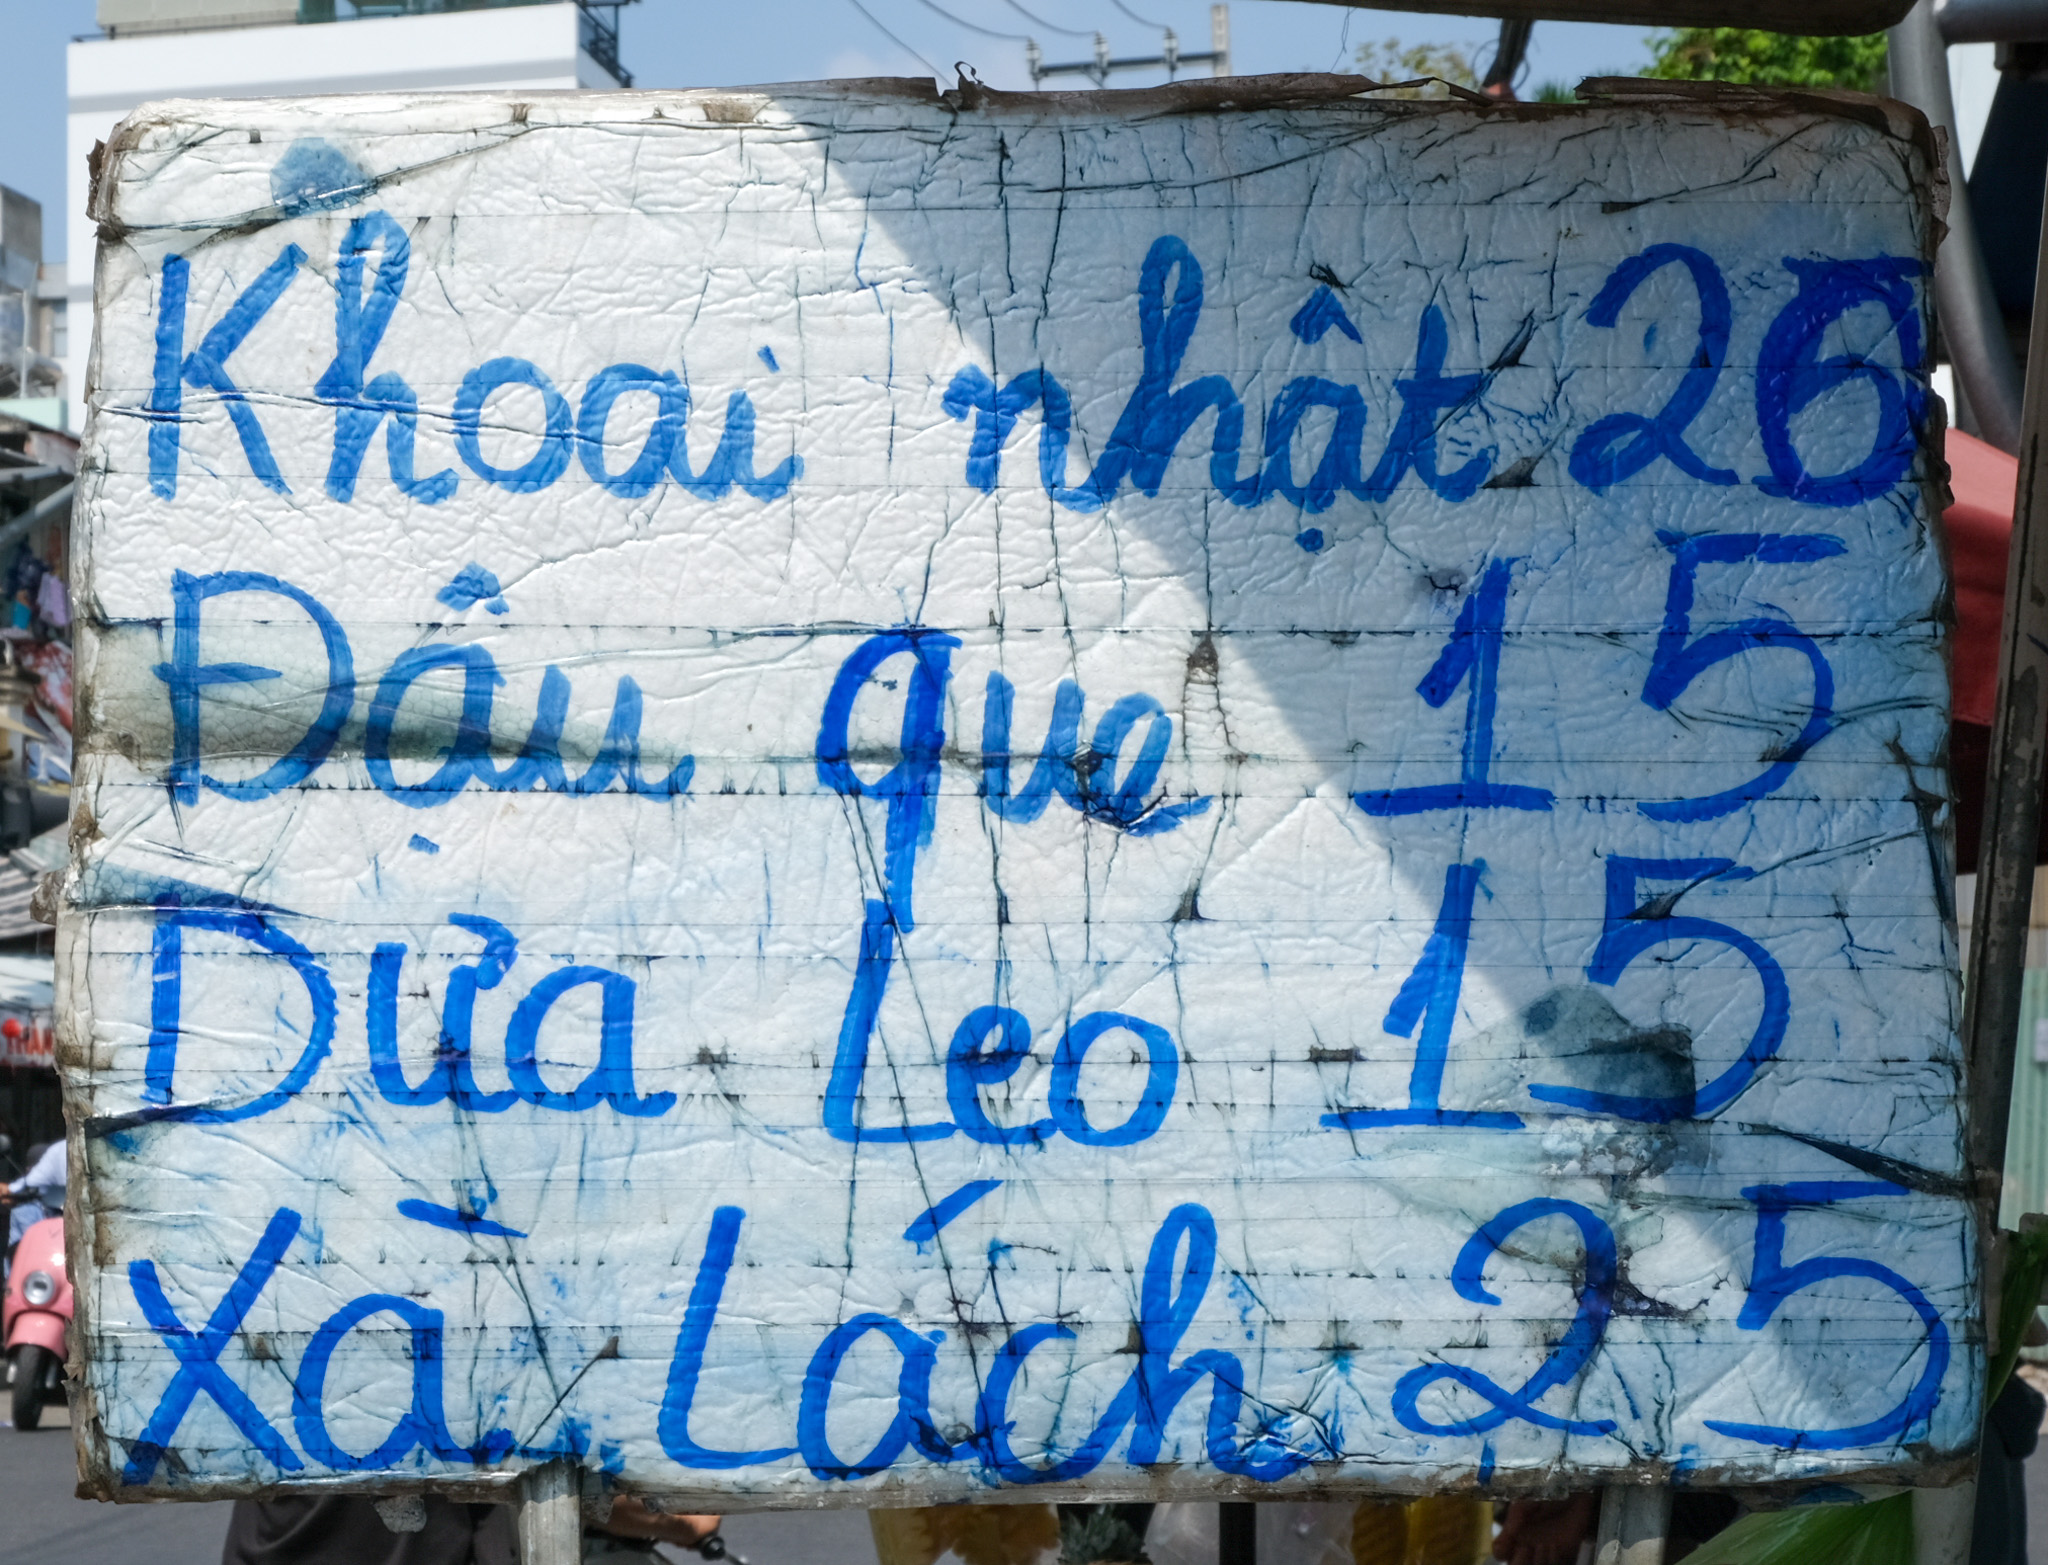 Khoai nhật 20
Đậu que 15
Dưa Leo 15
Xà Lách 25